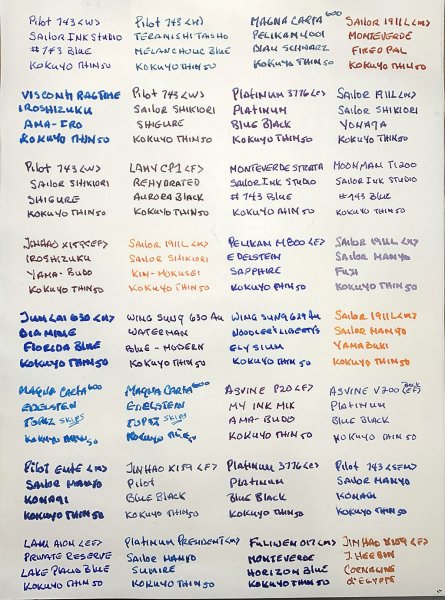 Pilot 743 <W>
Sailor Ink Studio
#743 Blue
Kokuyo Thin 50
Pilot 743 <M>
Teranishi Taisho
Melancholic Blue
Kokuyo Thin 50
Magna Carta 600
Pelikan 4001
Kokuyo Thin 50
Sailor 1911L <M>
Monteverde
Fireopal
Kokuyo Thin 50
Visconti Ragtime
Iroshizuku
Ama-Iro
Kokuyo Thin 50
Pilot 743 <W>
Sailor Shikiori
Shigure
Kokuyo Thin 50
Platinum 3776 <C>
Platinum
Blue Black
Kokuyo Thin 50
Sailor 1911L <M>
Sailor Shikiori
Yonaga
Kokuyo Thin 50
Pilot 743 <W>
Sailor Shikiori
Shigure
Kokuyo Thin 50
Lamy CP1 <F>
Rehydrated
Aurora Black
Kokuyo Thin 50
Monteverde Strata
Sailor Ink Studio
#743 Blue
Kokuyo Thin 50
Moonman Ti200
Sailor Ink Studio
#743 Blue
Kokuyo Thin 50
Jinhao X159 <EF>
Iroshizuku
Yama-Budo
Kokuyo Thin 50
Sailor 1911L <M>
Sailor Shikiori
Kin-Mokusei
Kokuyo Thin 50
Pelikan M800 <F>
Edelstein
Sapphire
Kokuyo Thin 50
Sailor 1911L <M>
Sailor Manyo
Fuji
Kokuyo Thin 50
Jun Lai 630 <M>
Diamine
Florida Blue
Kokuyo Thin 50
Wing Sung 630 Au
Waterman
Blue-Modern
Kokuyo Thin 50
Wing Sung 629 Au
Noodler's Liberty's
Elysium
Kokuyo Thin 50
Sailor 1911L <M>
Sailor Manyo
Yamabuki
Kokuyo Thin 50
Magna Carta 600
Edelstein
Topaz skips
Kokuyo Thin 50
Magna Carta 600
Edelstein
Topaz skips
Kokuyo Thin 50
Asvine P20 <F>
My Ink Mix
Ama-Budo
Kokuyo Thin 50
Asvine V200 <EF>
Platinum
Blue Black
Kokuyo Thin 50
Pilot Elite <M>
Sailor Manyo
Konagi
Kokuyo Thin 50
Jinhao X159 <F>
Pilot
Blue Black
Kokuyo Thin 50
Platinum 3776 <C>
Platinum
Blue Black
Kokuyo Thin 50
Pilot 743 <SFM>
Sailor Manyo
Konagi
Kokuyo Thin 50
Lami Aion <EF>
Private Reserve
Lake Placid Blue
Kokuyo Thin 50
Platinum President <M>
Sailor Manyo
Sumire
Kokuyo Thin 50
Fuliwen 017 <M>
Monteverde
Horizon Blue
Kokuyo Thin 50
Jinhao 8189 <F>
J. Herbin
Cornaline
d'Egypte